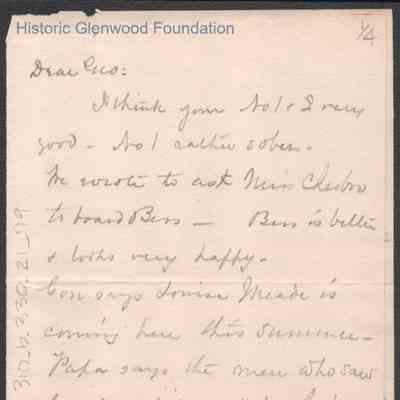 Historic Glenwood Foundation
1/4
Dear Geo:
I think your No 1 & 2 very
good - No 1 rather sober.
We wrote to ask Miss Chesbro
to board Bess - Bess is better
& looks very happy.
Con says Louise Meade is
coming here this summer -
Papa says the men who saw